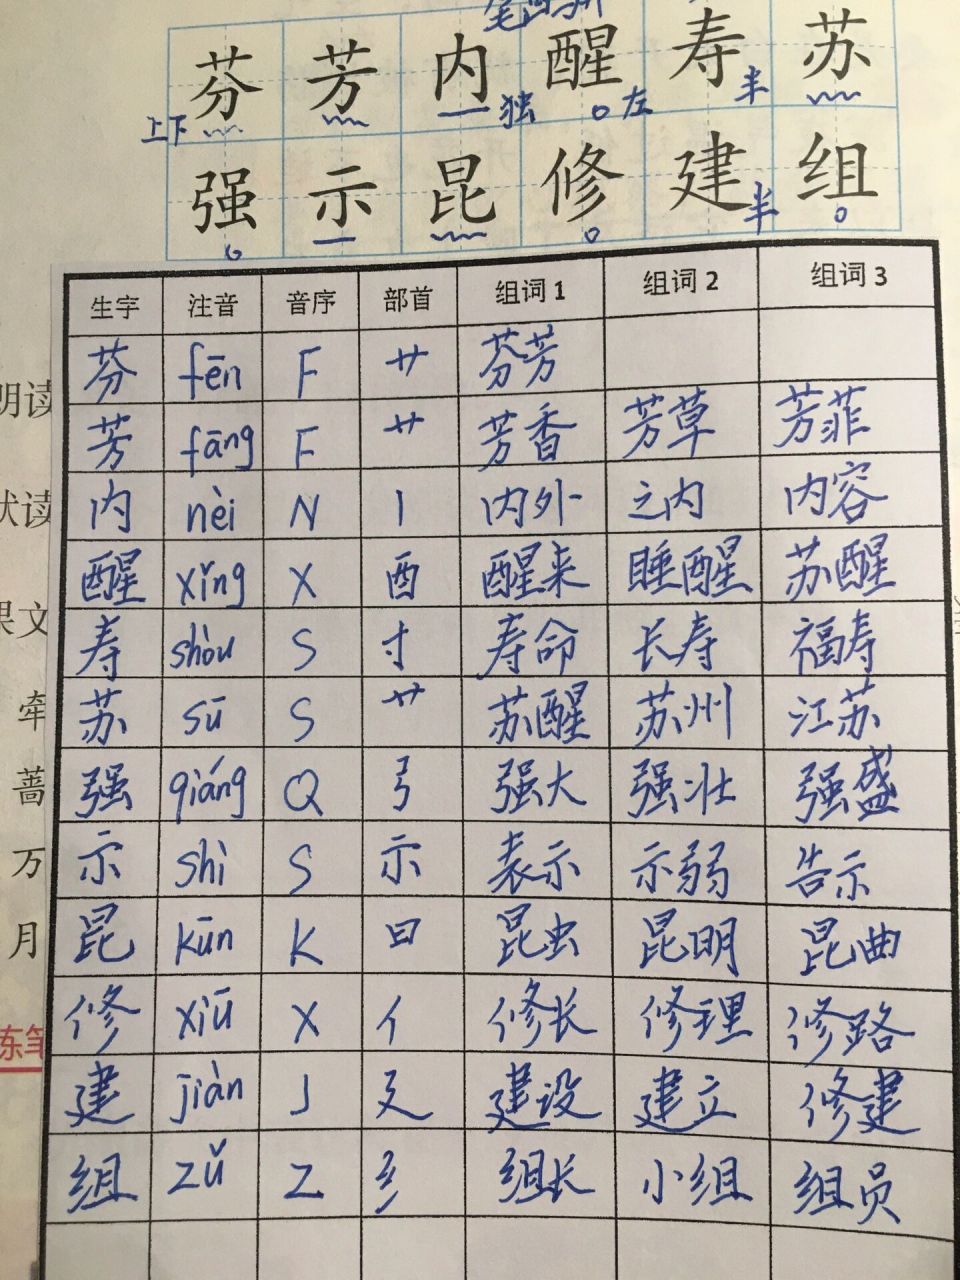 芬 芳 内 醒 寿 苏
上下 独 左 半
强 示 昆 修 建 组
半
生字 注音 音序 部首 组词1 组词2 组词3
芬 fēn F 艹 芬芳
芳 fāng F 艹 芳香 芳草 芳菲
内 nèi N 丨 内外 之内 内容
醒 xǐng X 酉 醒来 睡醒 苏醒
寿 shòu S 寸 寿命 长寿 福寿
苏 sū S 艹 苏醒 苏州 江苏
强 qiáng Q 弓 强大 强壮 强盛
示 shì S 示 表示 示弱 告示
昆 kūn K 日 昆虫 昆明 昆曲
修 xiū X 亻 修长 修理 修路
建 jiàn J 廴 建设 建立 修建
组 zǔ Z 纟 组长 小组 组员
朗读
默读
课文
牵
蔷
万
月
练笔